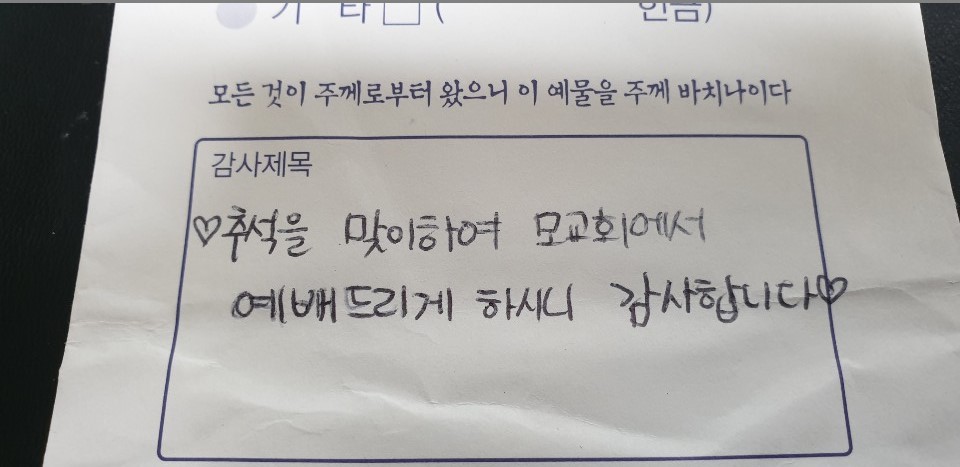 기 타 □ ( 헌금)
모든 것이 주께로부터 왔으니 이 예물을 주께 바치나이다
감사제목
♡추석을 맞이하여 모교회에서
예배드리게 하시니 감사합니다♡